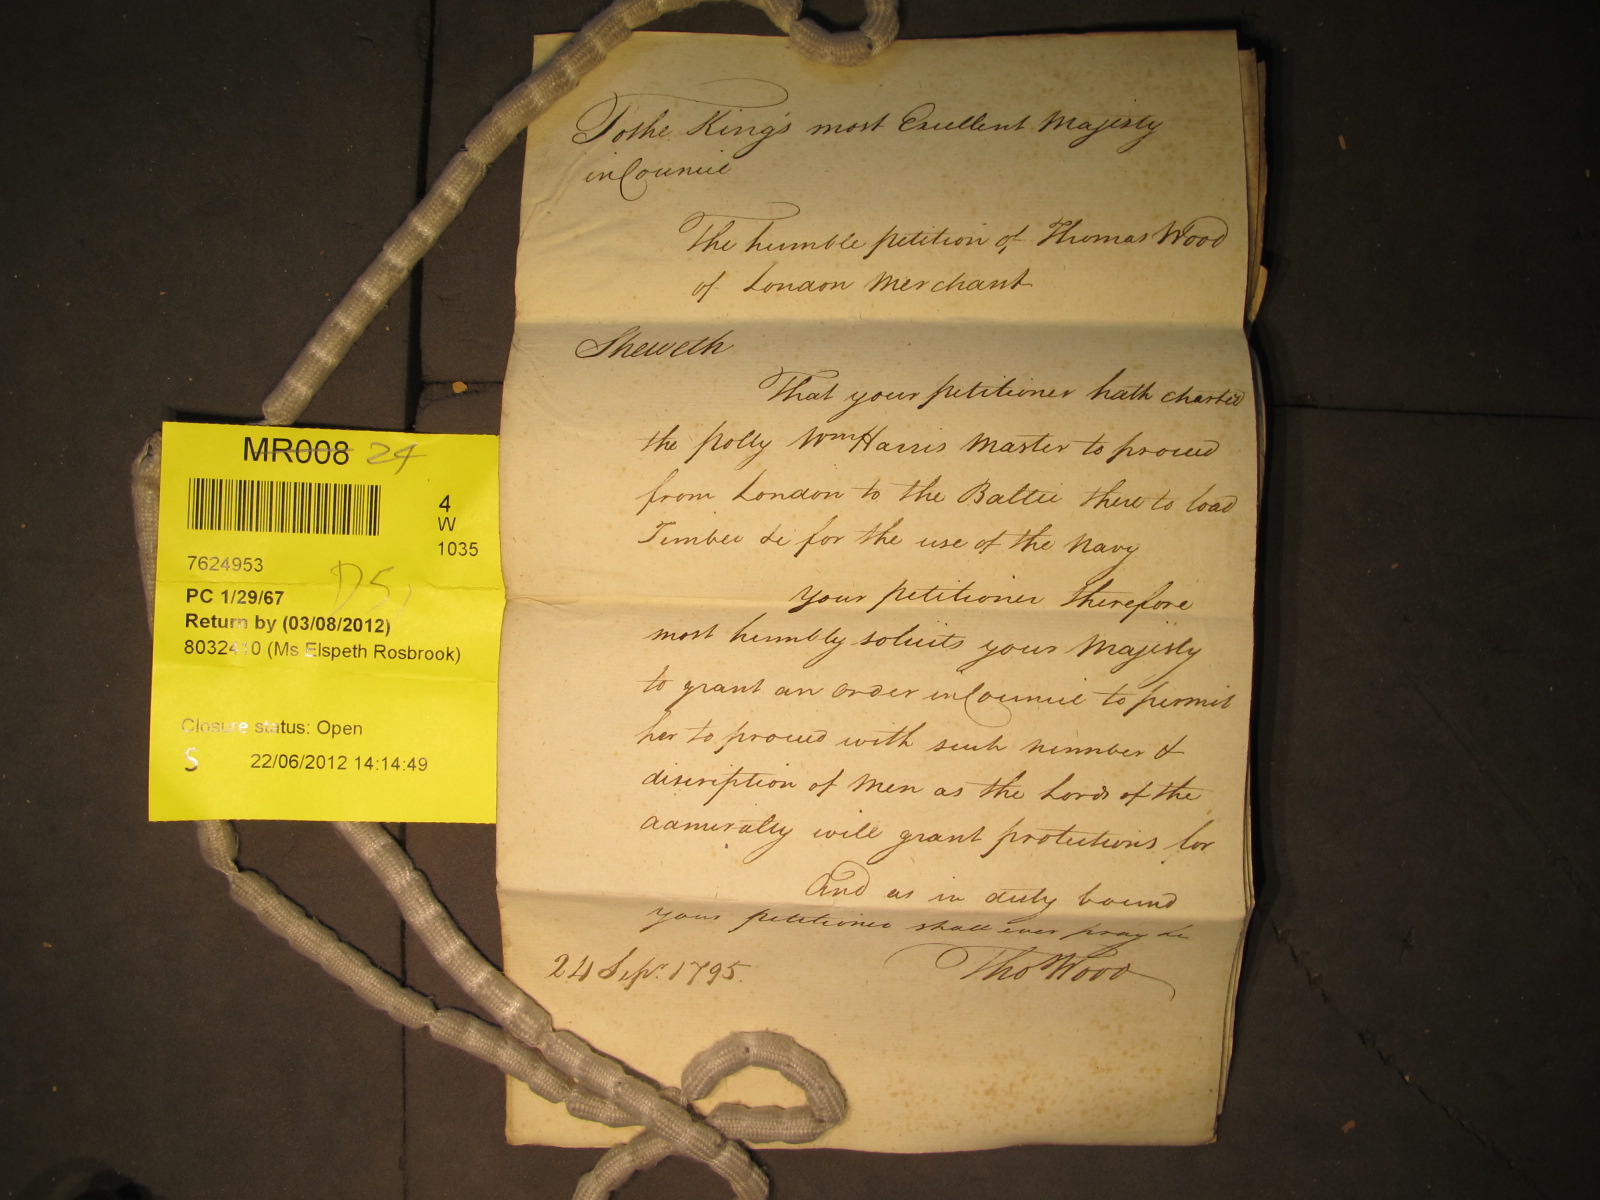 To the King's most Excellent Majesty
in Council
The humble petition of Thomas Wood
of London Merchant
Sheweth
That your petitioner hath charted
the polly Wm Harris Master to proceed
from London to the Baltic there to load
Timber &c for the use of the Navy
Your petitioner therefore
most humbly solicits your Majesty
to grant an order in Council to permit
her to proceed with such number &
discription of Men as the Lords of the
admiralty will grant protections for
And as in duty bound
your petitioner shall ever pray &c
24 Sepr. 1795.
Tho Wood
MR008 24
4
W
1035
7624953
PC 1/29/67
Return by (03/08/2012)
8032410 (Ms Elspeth Rosbrook)
Closure status: Open
S
22/06/2012 14:14:49